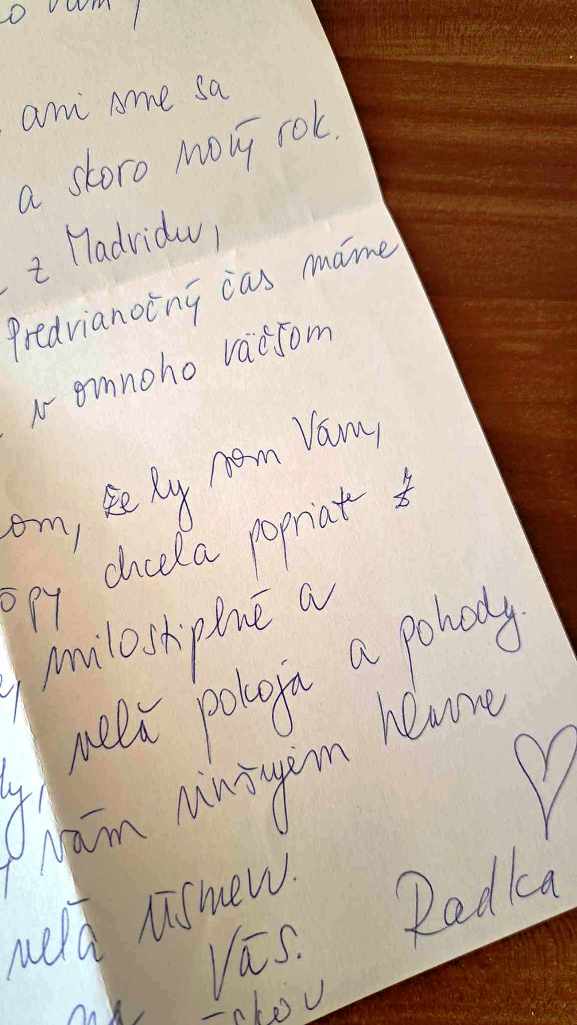 ani sme sa
a skoro nový rok.
z Madridu,
Predvianočný čas máme
v omnoho väčšom
že by som Vám,
chcela popriať z
milostiplné a
veľa pokoja a pohody.
vám vinšujem hlavne
veľa úsmevu.
Vás.
Radka